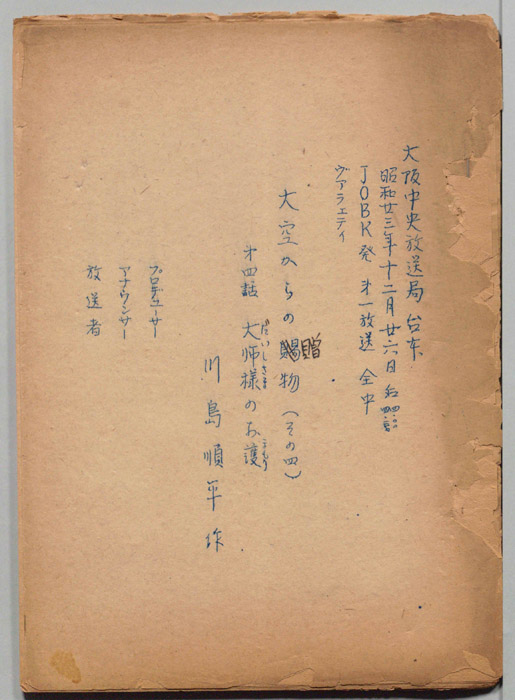 大阪中央放送局 台本
昭和廿三年十二月廿六日 后
JOBK発 第一放送 全中
ヴァラエティ
大空からの贈物(その四)
第四話 大師様のお護
だいしさま
川島順平作
プロデューサー
アナウンサー
放送者